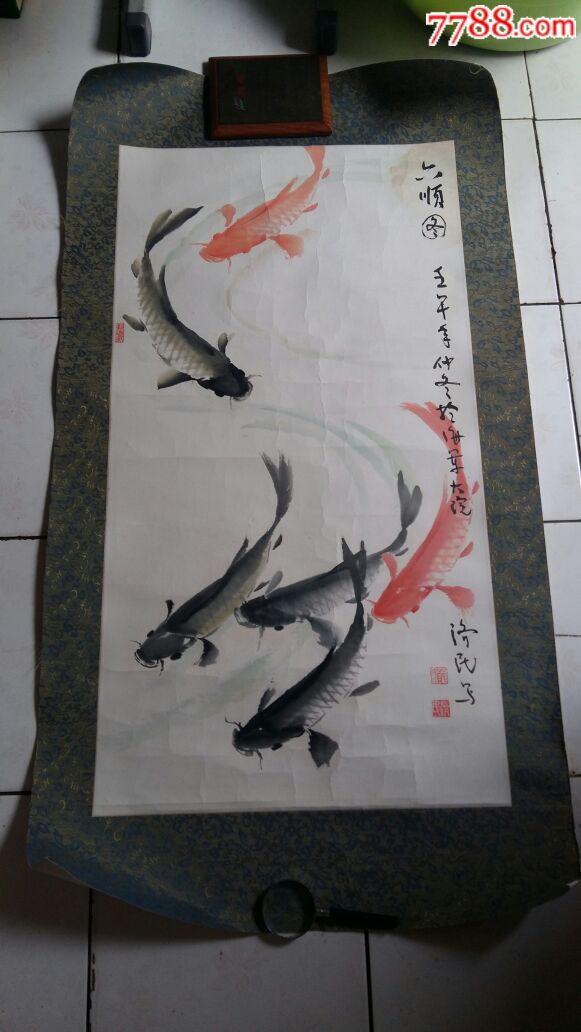 7788.com
六顺图
壬午年仲冬於海军大院
济民写